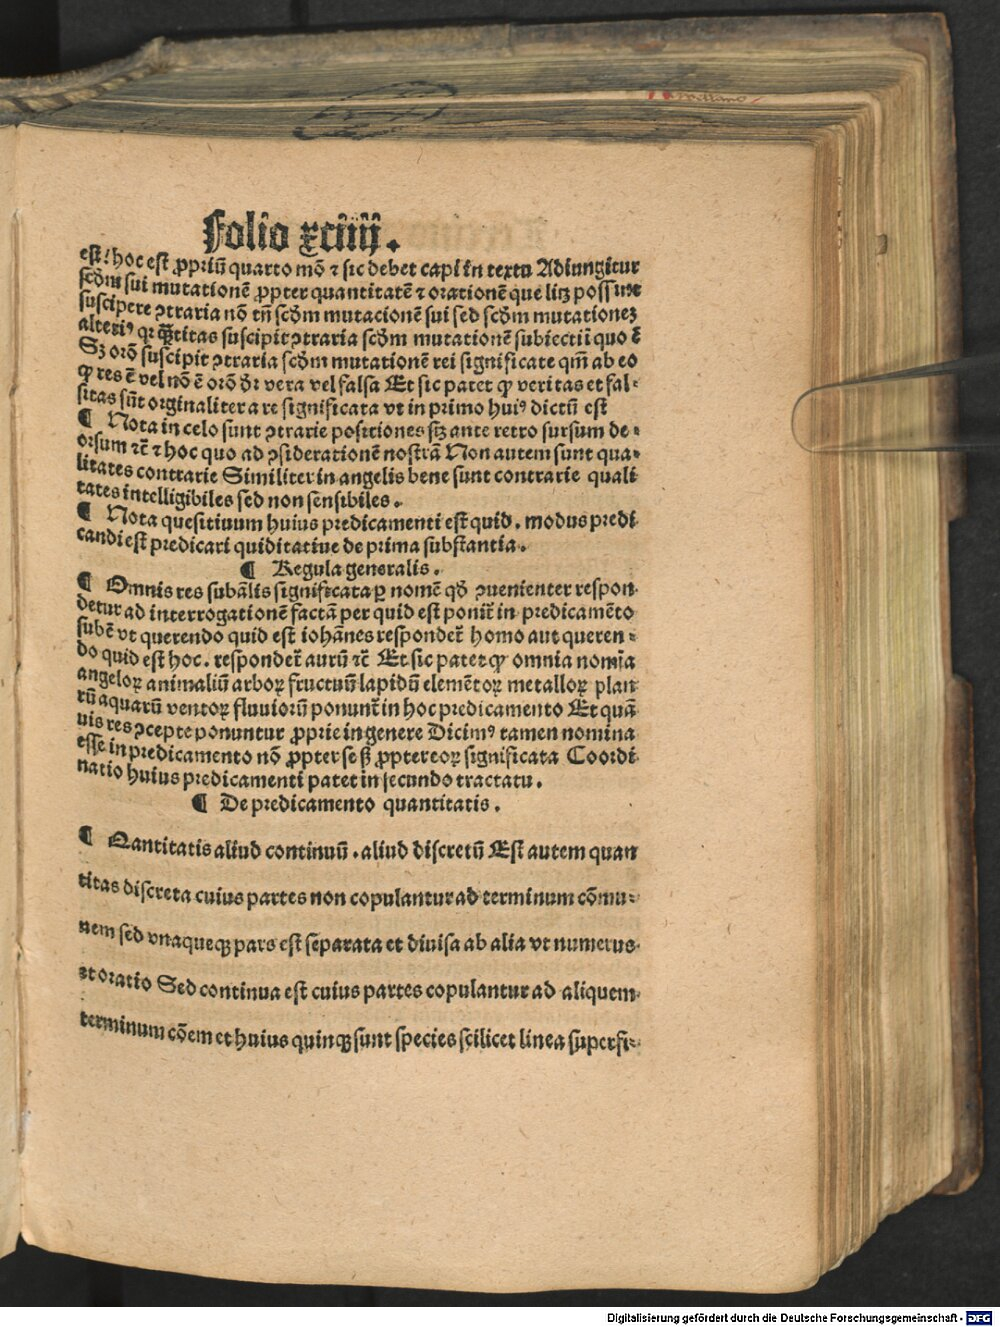 Folio xciiij.
est: hoc est ꝓpriū quarto mō ⁊ sic debet capi in textu Adiungitur
scḋm sui mutationē ꝓpter quantitatē ⁊ orationē que licꝫ possunt
suscipere ꝯtraria nō tñ scḋm mutacionē sui sed scḋm mutationeꝫ
alteriꝰ qꝛ q̄titas suscipit ꝯtraria scḋm mutationē subiecti in quo ē
Sꝫ orō suscipit ꝯtraria scḋm mutationē rei significate qm̄ ab eo
ꝙ res ē vel nō ē orō dr̄ vera vel falsa Et sic patet ꝙ veritas et fal⸗
sitas sūt orginaliter a re significata vt in primo huiꝰ dictū est
¶ Nota in celo sunt ꝯtrarie positiones sꝫ ante retro sursum de⸗
orsum ⁊c̄ ⁊ hoc quo ad ꝯsiderationē nostrā Non autem sunt qua⸗
litates contrarie Similiter in angelis bene sunt contrarie quali
tates intelligibiles sed non sensibiles.
¶ Nota quesitiuum huius predicamenti est quid. modus predi
candi est predicari quiditatiue de prima substantia.
¶ Regula generalis.
¶ Omnis res subālis significata ꝑ nomē qḋ ꝯuenienter respon
detur ad interrogationē factā per quid est ponit̄ in predicamēto
subē vt querendo quid est iohānes respondet̄ homo aut queren⸗
do quid est hoc. respondet̄ aurū ⁊c̄ Et sic patet ꝙ omnia nomīa
angeloꝝ animaliū arboꝝ fructuū lapidū elemētoꝝ metalloꝝ plan
tū aquarū ventoꝝ fluuiorū ponunt̄ in hoc predicamento Et quā
uis res ꝯcepte ponuntur ꝓprie in genere Dicimꝰ tamen nomina
esse in predicamento nō ꝓpter se sꝫ ꝓpter eoꝝ significata Coordi
natio huius predicamenti patet in secundo tractatu.
¶ De predicamento quantitatis.
¶ Qantitatis aliud continuū. aliud discretū Est autem quan
titas discreta cuius partes non copulantur ad terminum cōmu⸗
nem sed vnaqueqꝫ pars est separata et diuisa ab alia vt numerus
et oratio Sed continua est cuius partes copulantur ad aliquem
terminum cōem et huius quinqꝫ sunt species scilicet linea superfi⸗
Digitalisierung gefördert durch die Deutsche Forschungsgemeinschaft - DFG